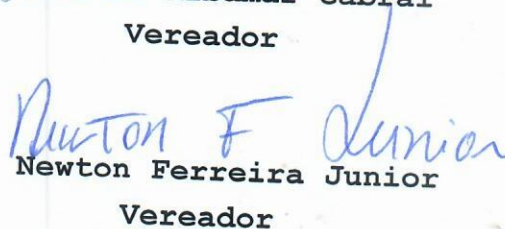 Cabral
Vereador
Newton F Junior
Newton Ferreira Junior
Vereador